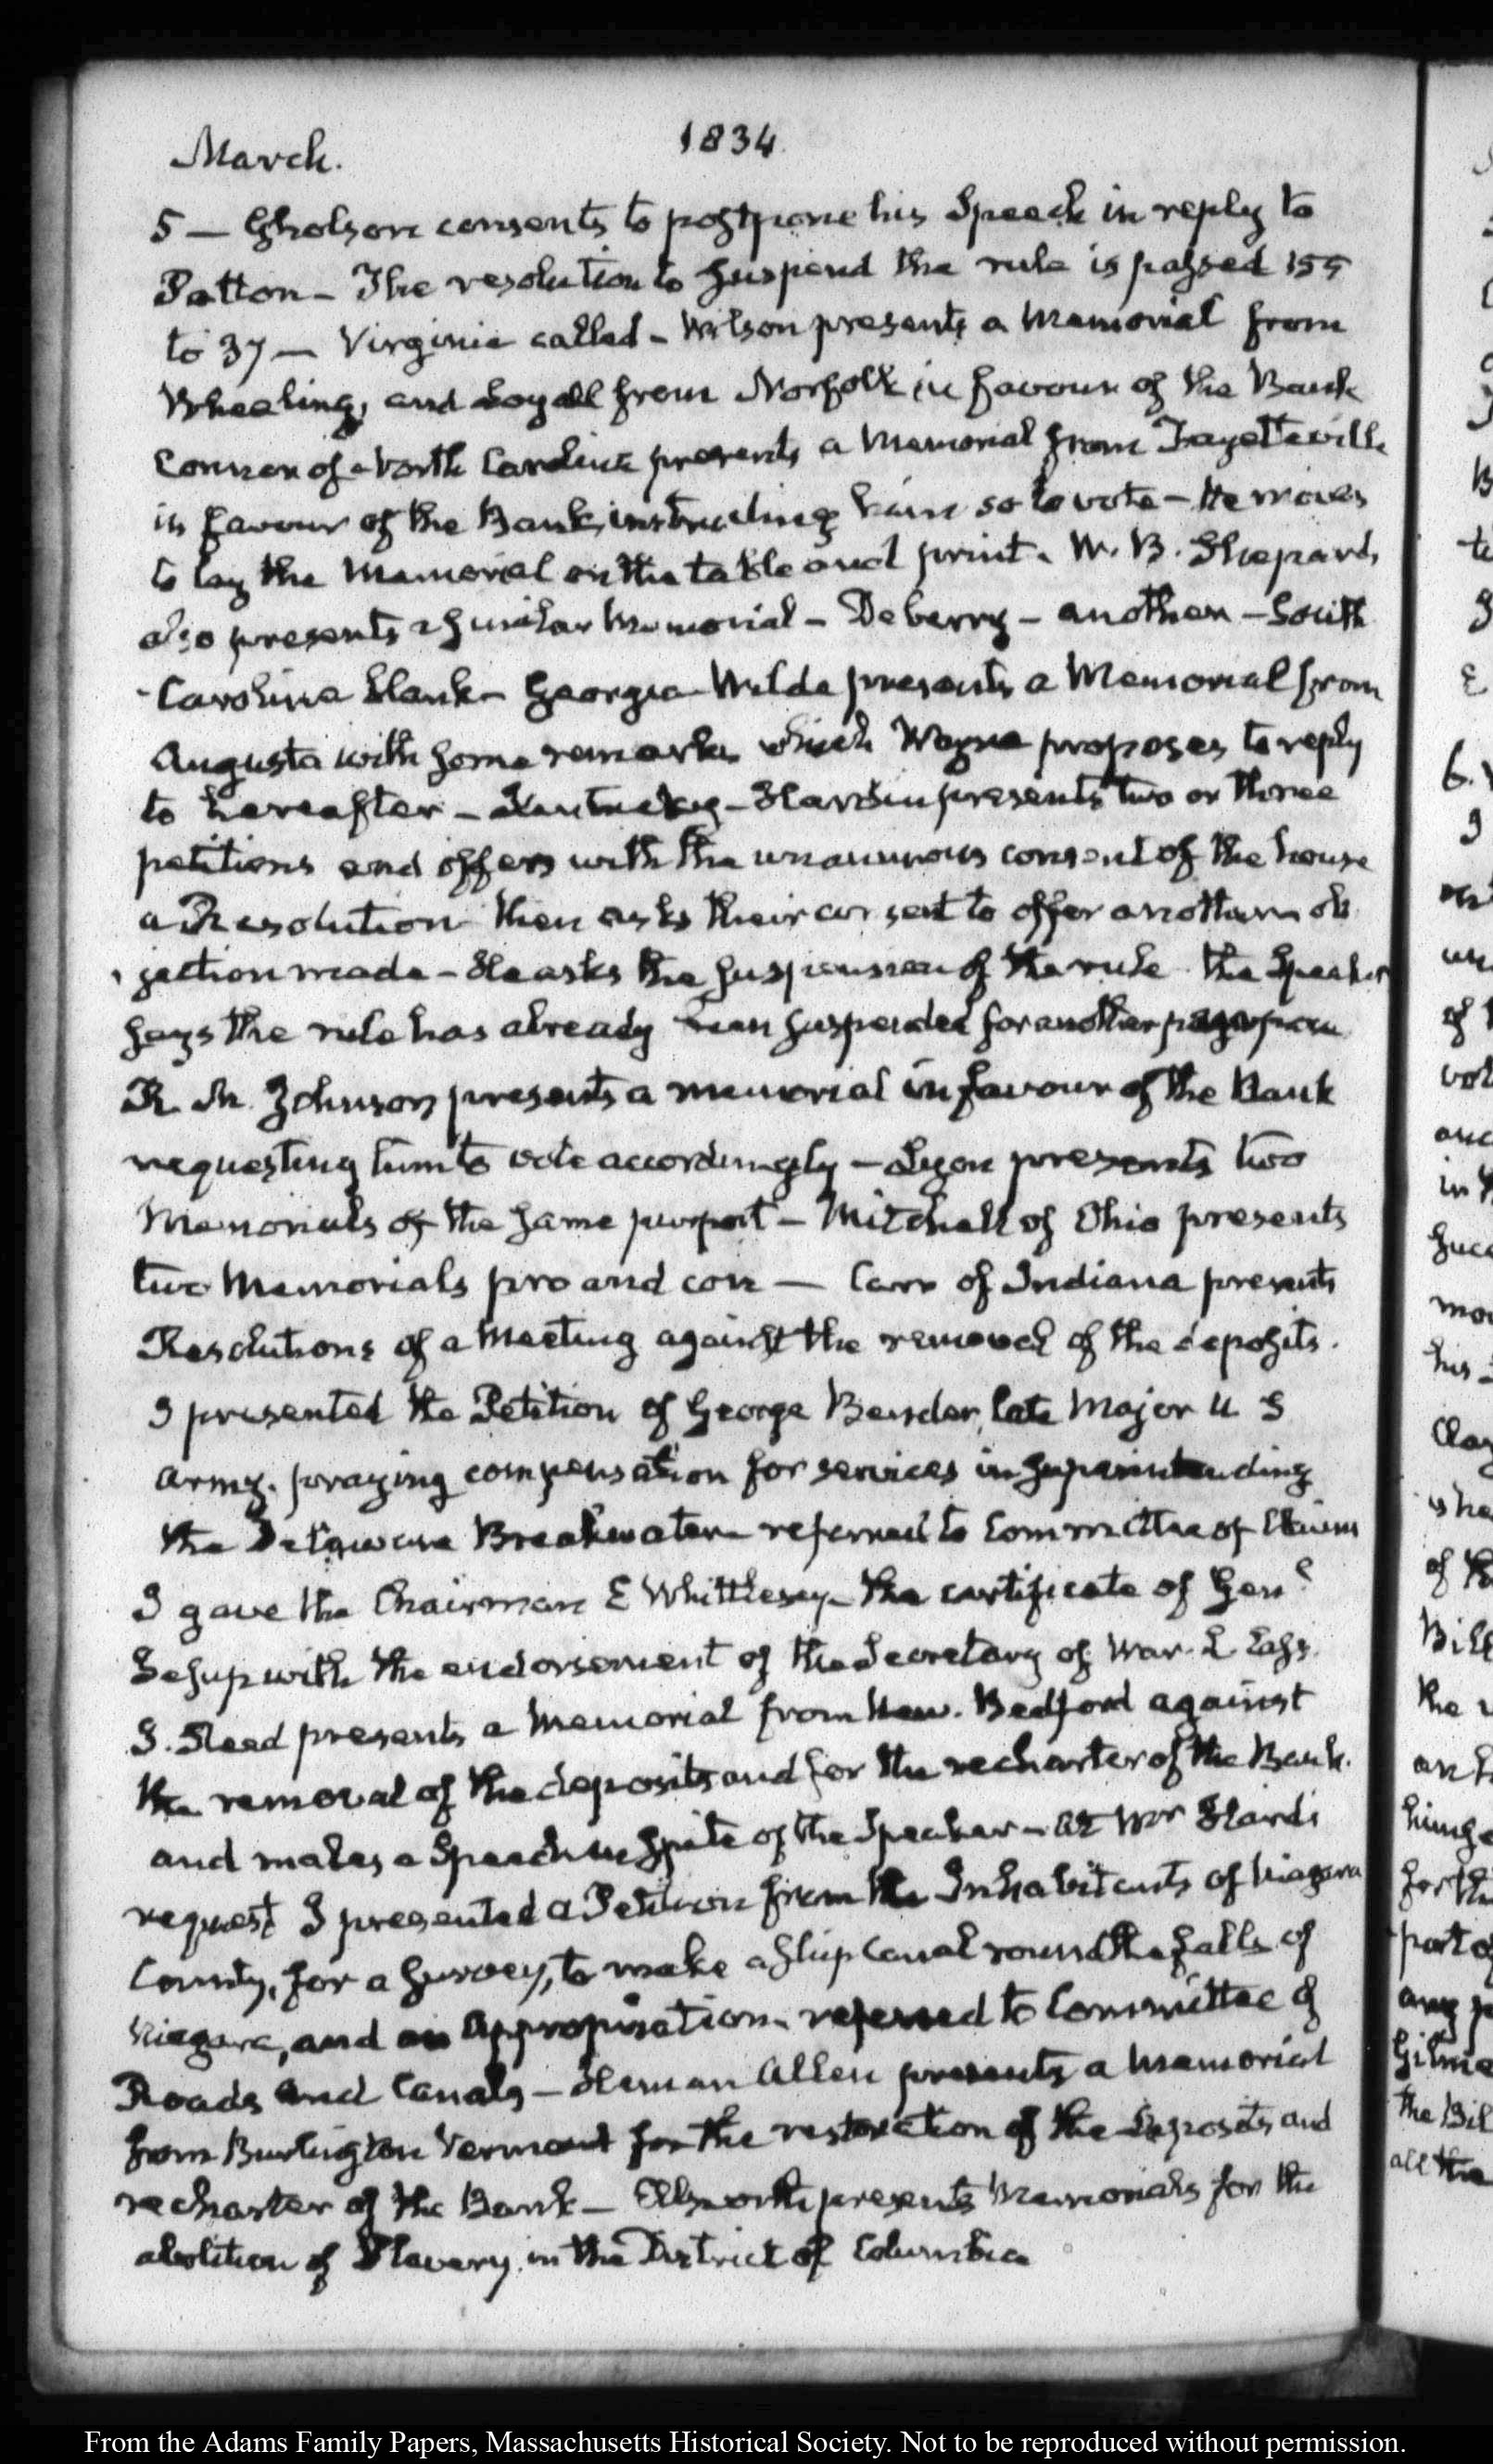 March.
1834
5 — Gholson consents to postpone his Speech in reply to
Patton — The resolution to suspend the rule is passed 155
to 37 — Virginia called — Wilson presents a Memorial from
Wheeling, and Loyall from Norfolk in favour of the Bank
Conner of North Carolina presents a Memorial from Fayetteville
in favour of the Bank, instructing him so to vote — He moves
to lay the Memorial on the table and print. W. B. Shepard,
also presents a similar Memorial — Deberry — another — South
Carolina blank — Georgia Wilde presents a Memorial from
Augusta with some remarks which Wayne proposes to reply
to hereafter — Kentucky — Hardin presents two or three
petitions and offers with the unanimous consent of the house
a Resolution then asks their consent to offer another ob
jection made — He asks the suspension of the rule the Speaker
says the rule has already been suspended for another
R. M. Johnson presents a memorial in favour of the Bank
requesting him to vote accordingly — Lyon presents two
Memorials of the same purport — Mitchell of Ohio presents
two Memorials pro and con — Carr of Indiana presents
Resolutions of a Meeting against the removal of the deposits.
I presented the Petition of George Bender, late Major U S
Army. praying compensation for services in superintending
the Delaware Breakwater referred to Committee of Claims
I gave the Chairman E Whittlesey the certificate of Genl.
Jesup with the endorsement of the Secretary of War. L Cass.
J. Reed presents a Memorial from New. Bedford against
the removal of the deposits and for the recharter of the Bank.
and makes a Speech in spite of the Speaker — at Mr Hard's
request I presented a Petition from the Inhabitants of Niagara
County, for a survey, to make a Ship Canal round the falls of
Niagara, and an Appropriation. referred to Committee of
Roads and Canals — Heman Allen presents a Memorial
from Burlington Vermont for the restoration of the Deposits and
recharter of the Bank — Elsworth presents Memorials for the
abolition of Slavery in the District of Columbia
From the Adams Family Papers, Massachusetts Historical Society. Not to be reproduced without permission.